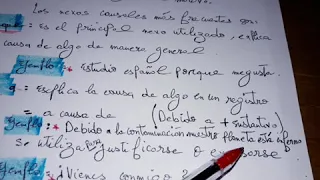 Los nexos causales más frecuentes son:
: es el principal nexo utilizado, explica
causa de algo de manera general
Ejemplo: * estudio español porque me gusta.
: explica la causa de algo en un registro
= a causa de (Debido a + sustantivo)
* Debido a la contaminación nuestro planeta está enfermo
: se utiliza para justificarse o
Ejemplo: = ¿Vienes conmigo